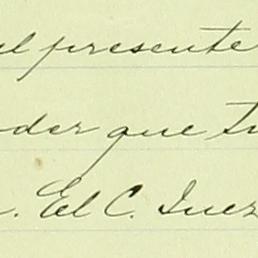 el presente
oder que tu
. El C. Juez